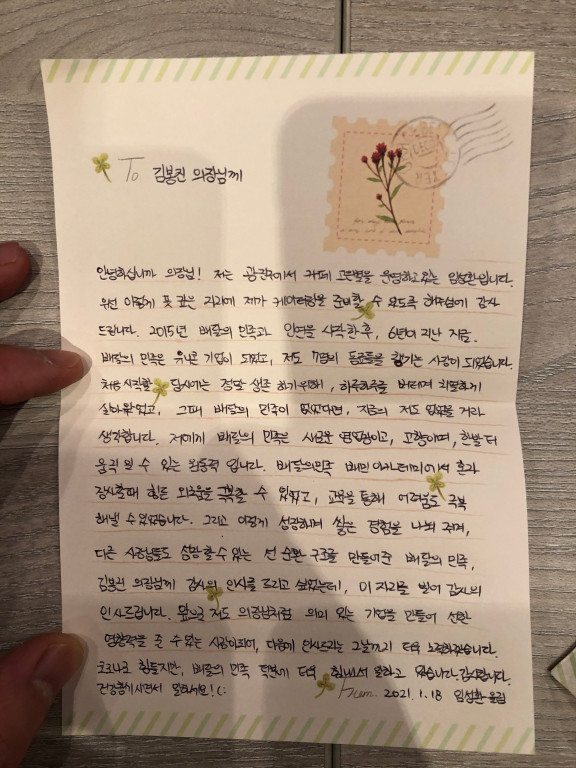 To. 김봉진 의장님께
안녕하십니까 의장님! 저는 광진구에서 카페 고르별을 운영하고 있는 임성환입니다.
우선 이렇게 뜻 깊은 자리에 제가 케이터링을 준비할 수 있도록 해주심에 감사
드립니다. 2015년 배달의 민족과 인연을 시작한 후, 6년이 지난 지금.
배달의 민족은 유니콘 기업이 되었고, 저도 7명의 동료들을 챙기는 사장이 되었습니다.
처음 시작할 당시에는 정말 생존 하기위해, 하루하루를 버티며 치열하게
살아왔었고, 그때 배달의 민족이 없었다면, 지금의 저도 없었을 거라
생각합니다. 저에게 배달의 민족은 새로운 영업장이고, 고향이며, 한발 더
움직일 수 있는 원동력 입니다. 배달의민족 배민아카데미에서 혼자
장사할때 힘든 외로움을 극복할 수 있었고, 교육을 통해 어려움도 극복
해낼 수 있었습니다. 그리고 이렇게 성장하며 쌓은 경험을 나눠 주며,
다른 사장님들도 성장 할 수 있는 선 순환 구조를 만들어준 배달의 민족,
김봉진 의장님께 감사의 인사를 드리고 싶었는데, 이 자리를 빌어 감사의
인사드립니다. 앞으로 저도 의장님처럼 의미 있는 기업을 만들어 선한
영향력을 줄 수 있는 사람이되어, 다음에 인사드리는 그날까지 더욱 노력하겠습니다.
코로나로 힘들지만, 배달의 민족 덕분에 더욱 힘내서 일하고 있습니다. 감사합니다.
건강챙기시면서 일하세요! (:
From. 2021. 1. 18 임성환 올림